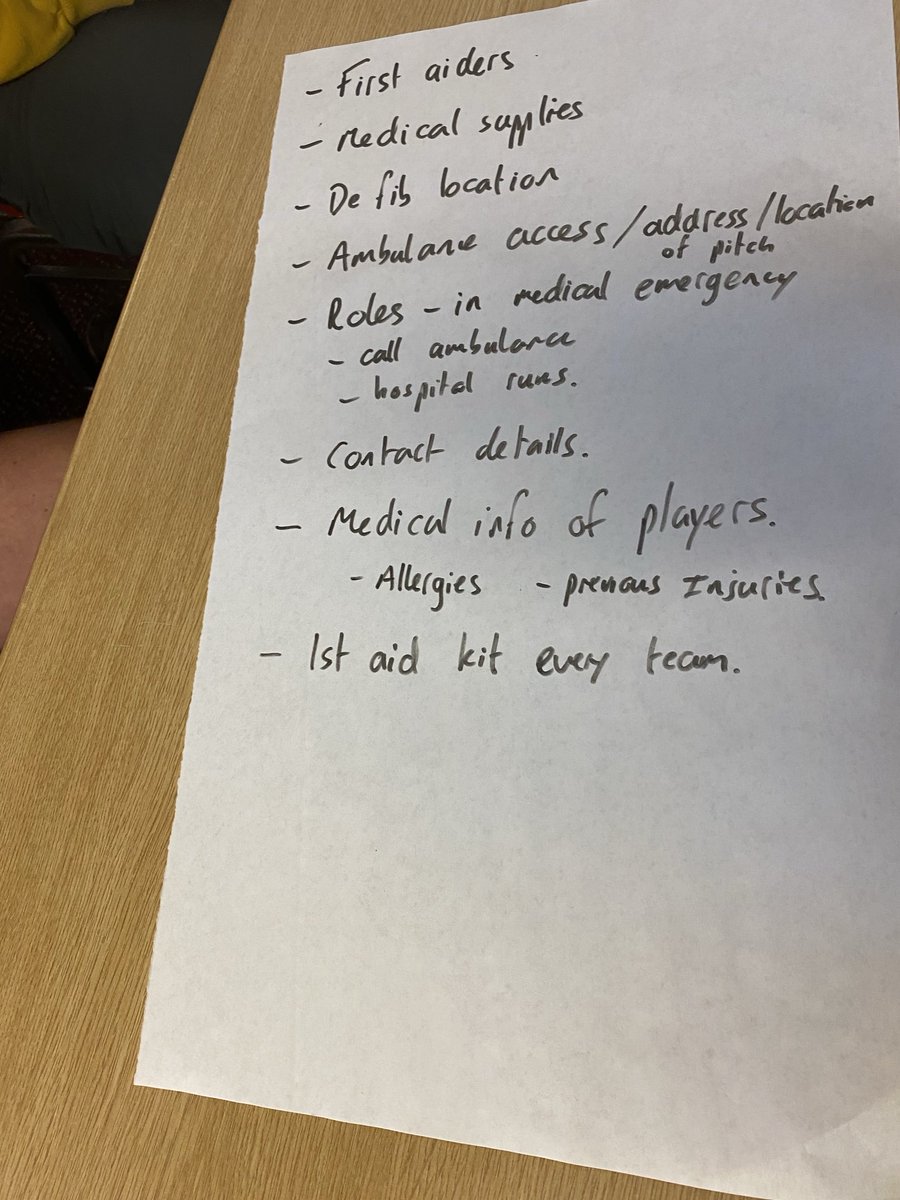 - First aiders
- Medical supplies
- Defib location
- Ambulance access/address/location
of pitch
- Roles - in medical emergency
- call ambulance
- hospital runs.
- Contact details.
- Medical info of players.
- Allergies - previous Injuries.
- 1st aid kit every team.